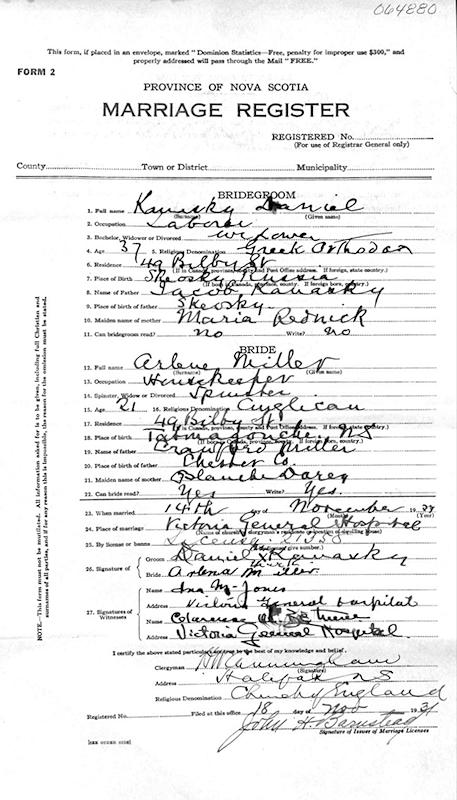 064880
This form, if placed in an envelope, marked "Dominion Statistics—Free, penalty for improper use $300," and
properly addressed will pass through the Mail "FREE."
FORM 2
PROVINCE OF NOVA SCOTIA
MARRIAGE REGISTER
REGISTERED No.
(For use of Registrar General only)
County Town or District Municipality
BRIDEGROOM
1. Full name Daniel
(Surname) (Given name)
2. Occupation Laborer
3. Bachelor, Widower or Divorced Widower
4. Age 37 5. Religious Denomination Greek Orthodox
6. Residence 49 Bilby St
(If in Canada, province, county and Post Office address. If foreign, state country.)
7. Place of Birth Russia
(If born in Canada, province. If foreign born, country.)
8. Name of Father Jacob
9. Place of birth of father
10. Maiden name of mother Maria Rednick
11. Can bridegroom read? no Write? no
BRIDE
12. Full name Arlene Miller
(Surname) (Given name)
13. Occupation Housekeeper
14. Spinster, Widow or Divorced Spinster
15. Age 21 16. Religious Denomination Anglican
17. Residence 49 Bilby St
(If in Canada, province, county and Post Office address. If foreign, state country.)
18. Place of birth Tatmagouche NS
19. Name of father Crawford Miller
20. Place of birth of father Chester Co.
21. Maiden name of mother Blanche
22. Can bride read? Yes Write? Yes.
23. When married 14th day of November 19
(Month) (Year)
24. Place of marriage Victoria General Hospital
25. By license or banns License
26. Signature of
Groom Daniel X
Bride Arlena Miller
27. Signatures of Witnesses
Name Ina M. Jones
Address Victoria General Hospital
Name Clarence
Address Victoria General Hospital.
I certify the above stated particulars are true to the best of my knowledge and belief.
Clergyman
(Signature)
Address Halifax NS
Religious Denomination Church of England
Registered No. Filed at this office 18 day of Nov 1931
John H. Barnstead
Signature of Issuer of Marriage Licenses
NOTE—This form must not be mutilated. All information asked for is to be given, including full Christian and
surnames of all parties, and if for any reason this is impossible, the reason for the omission must be stated.